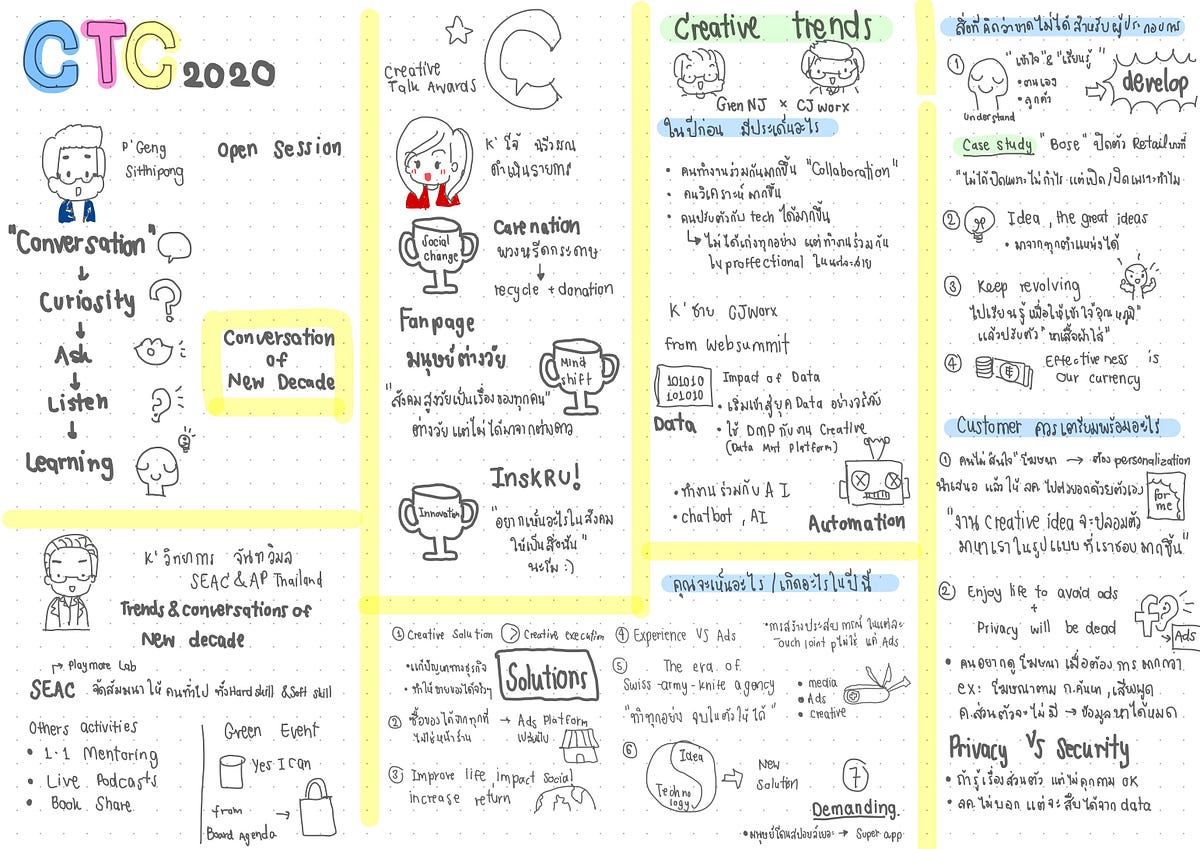 CTC 2020
P'Geng
Sitthipong
Open Session
"Conversation"
Curiosity
Ask
Listen
Learning
Conversation
of
New Decade
K' วิทยากร จันทวิมล
SEAC & AP Thailand
Trends & conversations of
New decade
Playmore Lab
SEAC จัดสัมมนาให้ คนทั่วไป ทั้ง Hard skill & Soft skill
Others activities
• 1-1 Mentoring
• Live Podcasts
• Book Share
Green Event
Yes I can
from
Board Agenda
Creative
Talk Awards
K' โจ้ ฉวีวรรณ
ดำเนินรายการ
Social
change
Carenation
พวงหรีดกระดาษ
recycle + donation
Fanpage
มนุษย์ต่างวัย
Mind
shift
"สังคมสูงวัยเป็นเรื่องของทุกคน"
ต่างวัย แต่ไม่ได้มาจากต่างดาว
InsKRU!
Innovation
"อยากเห็นอะไรในสังคม
ให้เป็นสิ่งนั้น"
นะโม :)
Creative trends
GrenNJ x CJ worx
ในปีก่อน มีประเด็นอะไร
• คนทำงานร่วมกันมากขึ้น "Collaboration"
• คนวิเคราะห์มากขึ้น
• คนปรับตัวกับ tech ได้มากขึ้น
ไม่ได้เก่งทุกอย่าง แต่ทำงานร่วมกัน
ใน proffectional ในแต่ละสาย
K' ชาย CJWorx
from websummit
101010
101010
Data
Impact of Data
• เริ่มเข้าสู่ยุค Data อย่างจริงจัง
• ใช้ DMP กับงาน Creative
(Data Mnt Platform)
• ทำงานร่วมกับ AI
• chatbot, AI
Automation
คุณจะเห็นอะไร / เกิดอะไรในปีนี้
① Creative Solution > Creative execution
• แก้ปัญหาทางธุรกิจ
• ทำให้ขายของได้จริงๆ
Solutions
② ซื้อของได้จากทุกที่ → Ads Platform
ไม่ใช่หน้าร้าน
③ Improve life impact social
increase return
④ Experience VS Ads
• การสร้างประสบการณ์ ในแต่ละ
Touch Joint ไม่ใช่ แค่ Ads
⑤ The era of
Swiss-army-knite agency
"ทำทุกอย่าง จบในตัวให้ได้"
• media
• Ads
• creative
⑥ Idea
Techno
logy
New
Solution
⑦
Demanding.
• มนุษย์โดนสปอยล์เยอะ → Super app
สิ่งที่คิดว่าขาดไม่ได้ สำหรับผู้ประกอบการ
① "เข้าใจ" & "เรียนรู้"
• ตนเอง
• ลูกค้า
understand
develop
Case study "Bose" ปิดตัว Retail บางที่
"ไม่ได้ปิดเพราะไม่กำไร แต่เปิด/ปิดเพราะทำไม
② Idea, the great ideas
• มาจากทุกตำแหน่งได้
③ Keep revolving
ไปเรียนรู้ เพื่อให้ เข้าใจ "อุณหภูมิ"
แล้วปรับตัว "หาเสื้อผ้าใส่"
④ Effectiveness is
Our currency
Customer ควรเตรียมพร้อมอะไร
① คนไม่สนใจ "โฆษณา → ต้อง personalization
นำเสนอ แล้วให้ ลค ไปต่อยอดด้วยตัวเอง
for
me
"งาน Creative idea จะปลอมตัว
มาหาเราในรูปแบบที่เราชอบ มากขึ้น"
② Enjoy life to avoid ads
+
Privacy will be dead
Ads
• คนอยากดู โฆษณา เมื่อต้องการ มากกว่า
ex: โฆษณาตาม ก.ค้นหา, เสียงพูด
ค.ส่วนตัวจะไม่มี → ข้อมูลหาได้หมด
Privacy VS Security
• ถ้ารู้เรื่องส่วนตัว แต่ไม่คุกคาม OK
• ลค ไม่บอก แต่จะ สืบได้จาก data